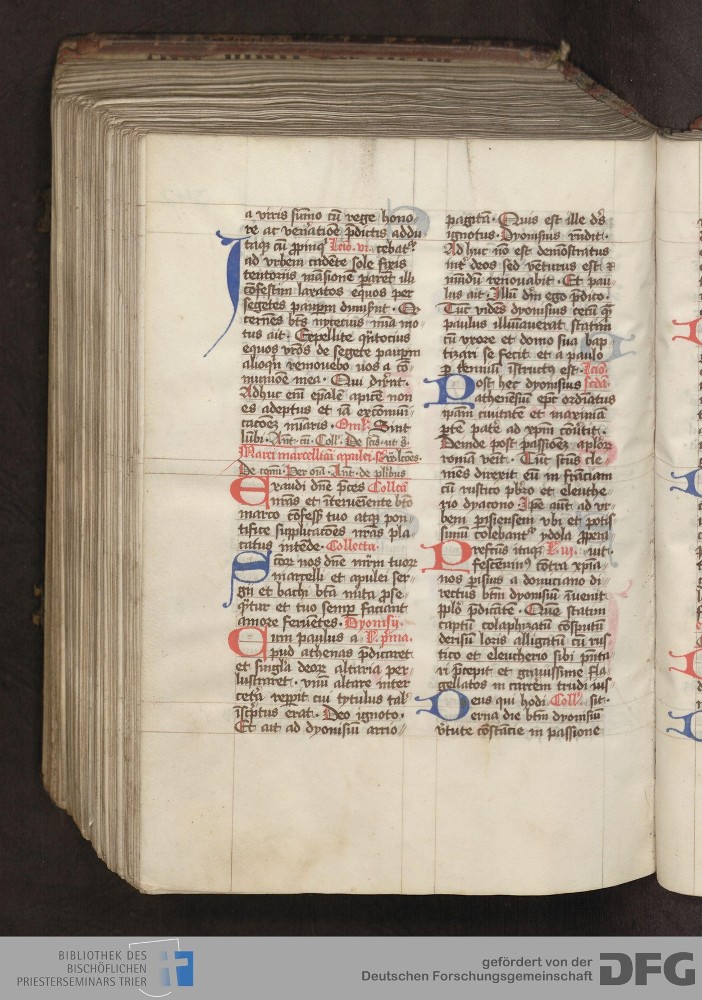 a viris sūmo cū rege hono
re ac veńatiōe p̄dictis addu
taqꝫ cū ꝓpinqꝰ Lcio. vi. rebat᷑
ad vrbem cadēte sole fixis
tentoriis māsione paret illi
cōfestim laxatos equos per
segetes paupm dimiſ̄nt.
cernēs bt̄s nyceciꝰ nīıa mo
tus ait. Expellite q̄ntocius
equos vr̄os de segete paupm
alioqn remouebo vos a cō
munōe mea. Qui dix̄nt.
Adhuc em̄ epalē apicē non
es adeptus et iā excōmui
cacōeꝫ mīaris. Om̄. Sint
lūbi. Ant. cū. Coll. De scīs. ut s̄.
Marci marcelliāi apulei
De cōmi. Per oīa. Ant. de plībus
Exaudi dn̄e p̄ces Collecā
nr̄as et īterueniente bt̄o
marco cōfess̄ tuo atqꝫ pon
tifice supplicacōes nr̄as pla
catus intēde. Collecta.
Sc̄or nos dn̄e mr̄m tuor
marcelli et apulei ser
gii et bachi bt̄a mīta ꝓse
q̄tur et tuo semp̄ faciant
amore feruētes. Dyonisij.
Cum paulus a L. p̄ma.
pud athenas p̄dicaret
et singl̄a deoꝝ altaria per
lustraret. vnū altare inter
cetᷓa rep̄it cui tytulus tal̓
īscͥptus erat. Deo ignoto.
Et ait ad dyonisiū ario
pagitā. Quis est ille dꝰ
ignotus. Dyonisius rn̄dit.
Adhuc nō est demōstratus
int̓ deos sed venturus est ⁊
mūdū renouabit. Et pau
lus ait. Illū dīn ego p̄dico.
Tūc vidēs dyonisius cecū q̄
paulus illuīauerat statim
cū vxore et domo sua bap
tizari se fecit et a paulo
ꝑ trienniū īstructꝰ est. Lcio
Post hec dyonisius scda
atheneñsiū epc̄ ordinatus
ipam ciuitatē et maximā
pte patᷓe ad xpm cōūtit.
Deinde post passioeꝫ aplōꝝ
romā veīt. Tūc sctūs cle
mēs direxit eū in frāciam
cū rustico pbr̄o et eleuthe
rio dyacono. Ipe aūt ad vr
bem pisiensem vbi et potis
simū colebantᷓ ydola ꝓperā
Prefectus itaqꝫ L. iij. uit.
fescenninꝰ cōtra xpia
nos pisius a domiciano di
rectus btm̄ dyonisiū īuenit
pplō p̄dicātē. Que statim
captū colaphizatū cōsputū
derisū loris alligatū cū rus
tico et eleutherio sibi p̄nta
ri p̄cepit et grauissime fla
gellatos in carcērē trudi ius
Deus qui hodi Coll̄. sit.
erna die btm̄ dyonisiū
v̓tute cōstācie in passione
BIBLIOTHEK DES
BISCHÖFLICHEN
PRIESTERSEMINARS TRIER
gefördert von der
Deutschen Forschungsgemeinschaft
DFG